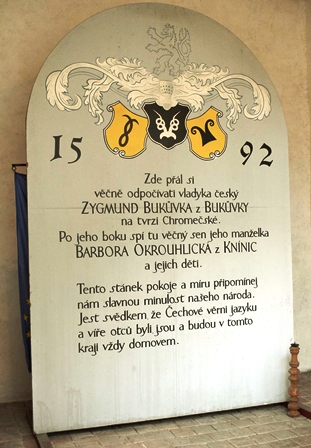 15 92
Zde přál si
věčně odpočívati vladyka český
ZYGMUND BUKŮVKA z BUKŮVKY
na tvrzi Chromečské.
Po jeho boku spí tu věčný sen jeho manželka
BARBORA OKROUHLICKÁ z KNÍNIC
a jejich děti.
Tento stánek pokoje a míru připomínej
nám slavnou minulost našeho národa.
Jest svědkem, že Čechové věrni jazyku
a víře otců byli, jsou a budou v tomto
kraji vždy domovem.